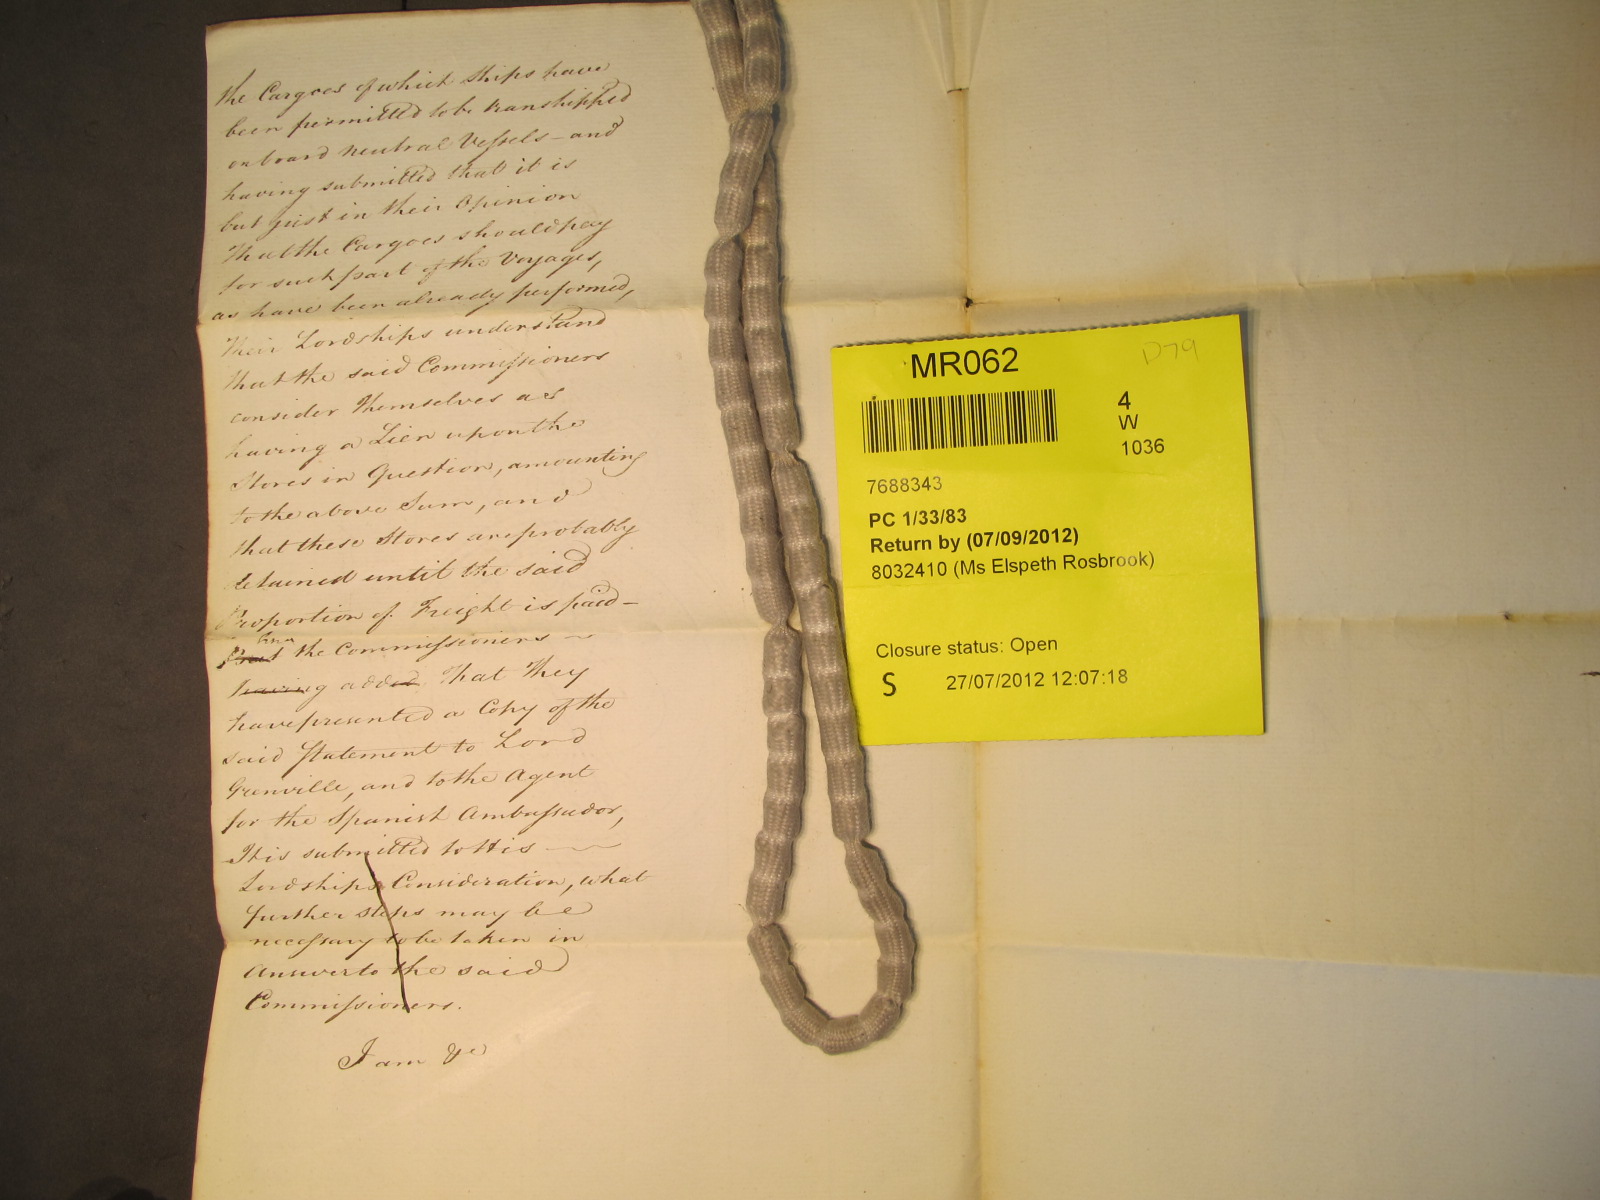 the Cargoes of which Ships have
been permitted to be transhipped
on board neutral Vessels – and
having submitted that it is
but just in their Opinion
that the Cargoes should pay
for such part of the Voyages,
as have been already performed,
Their Lordships understand
that the said Commissioners
consider themselves as
having a Lien upon the
Stores in Question, amounting
to the above Sum, and
that these Stores are probably
detained until the said
Proportion of Freight is paid –
the Commissioners
having added That they
have presented a Copy of the
said Statement to Lord
Grenville, and to the Agent
for the Spanish Ambassador,
It is submitted to His
Lordships Consideration, what
further steps may be
necessary to be taken in
Answer to the said
Commissioners.
I am &c
MR062
D79
4
W
1036
7688343
PC 1/33/83
Return by (07/09/2012)
8032410 (Ms Elspeth Rosbrook)
Closure status: Open
S 27/07/2012 12:07:18